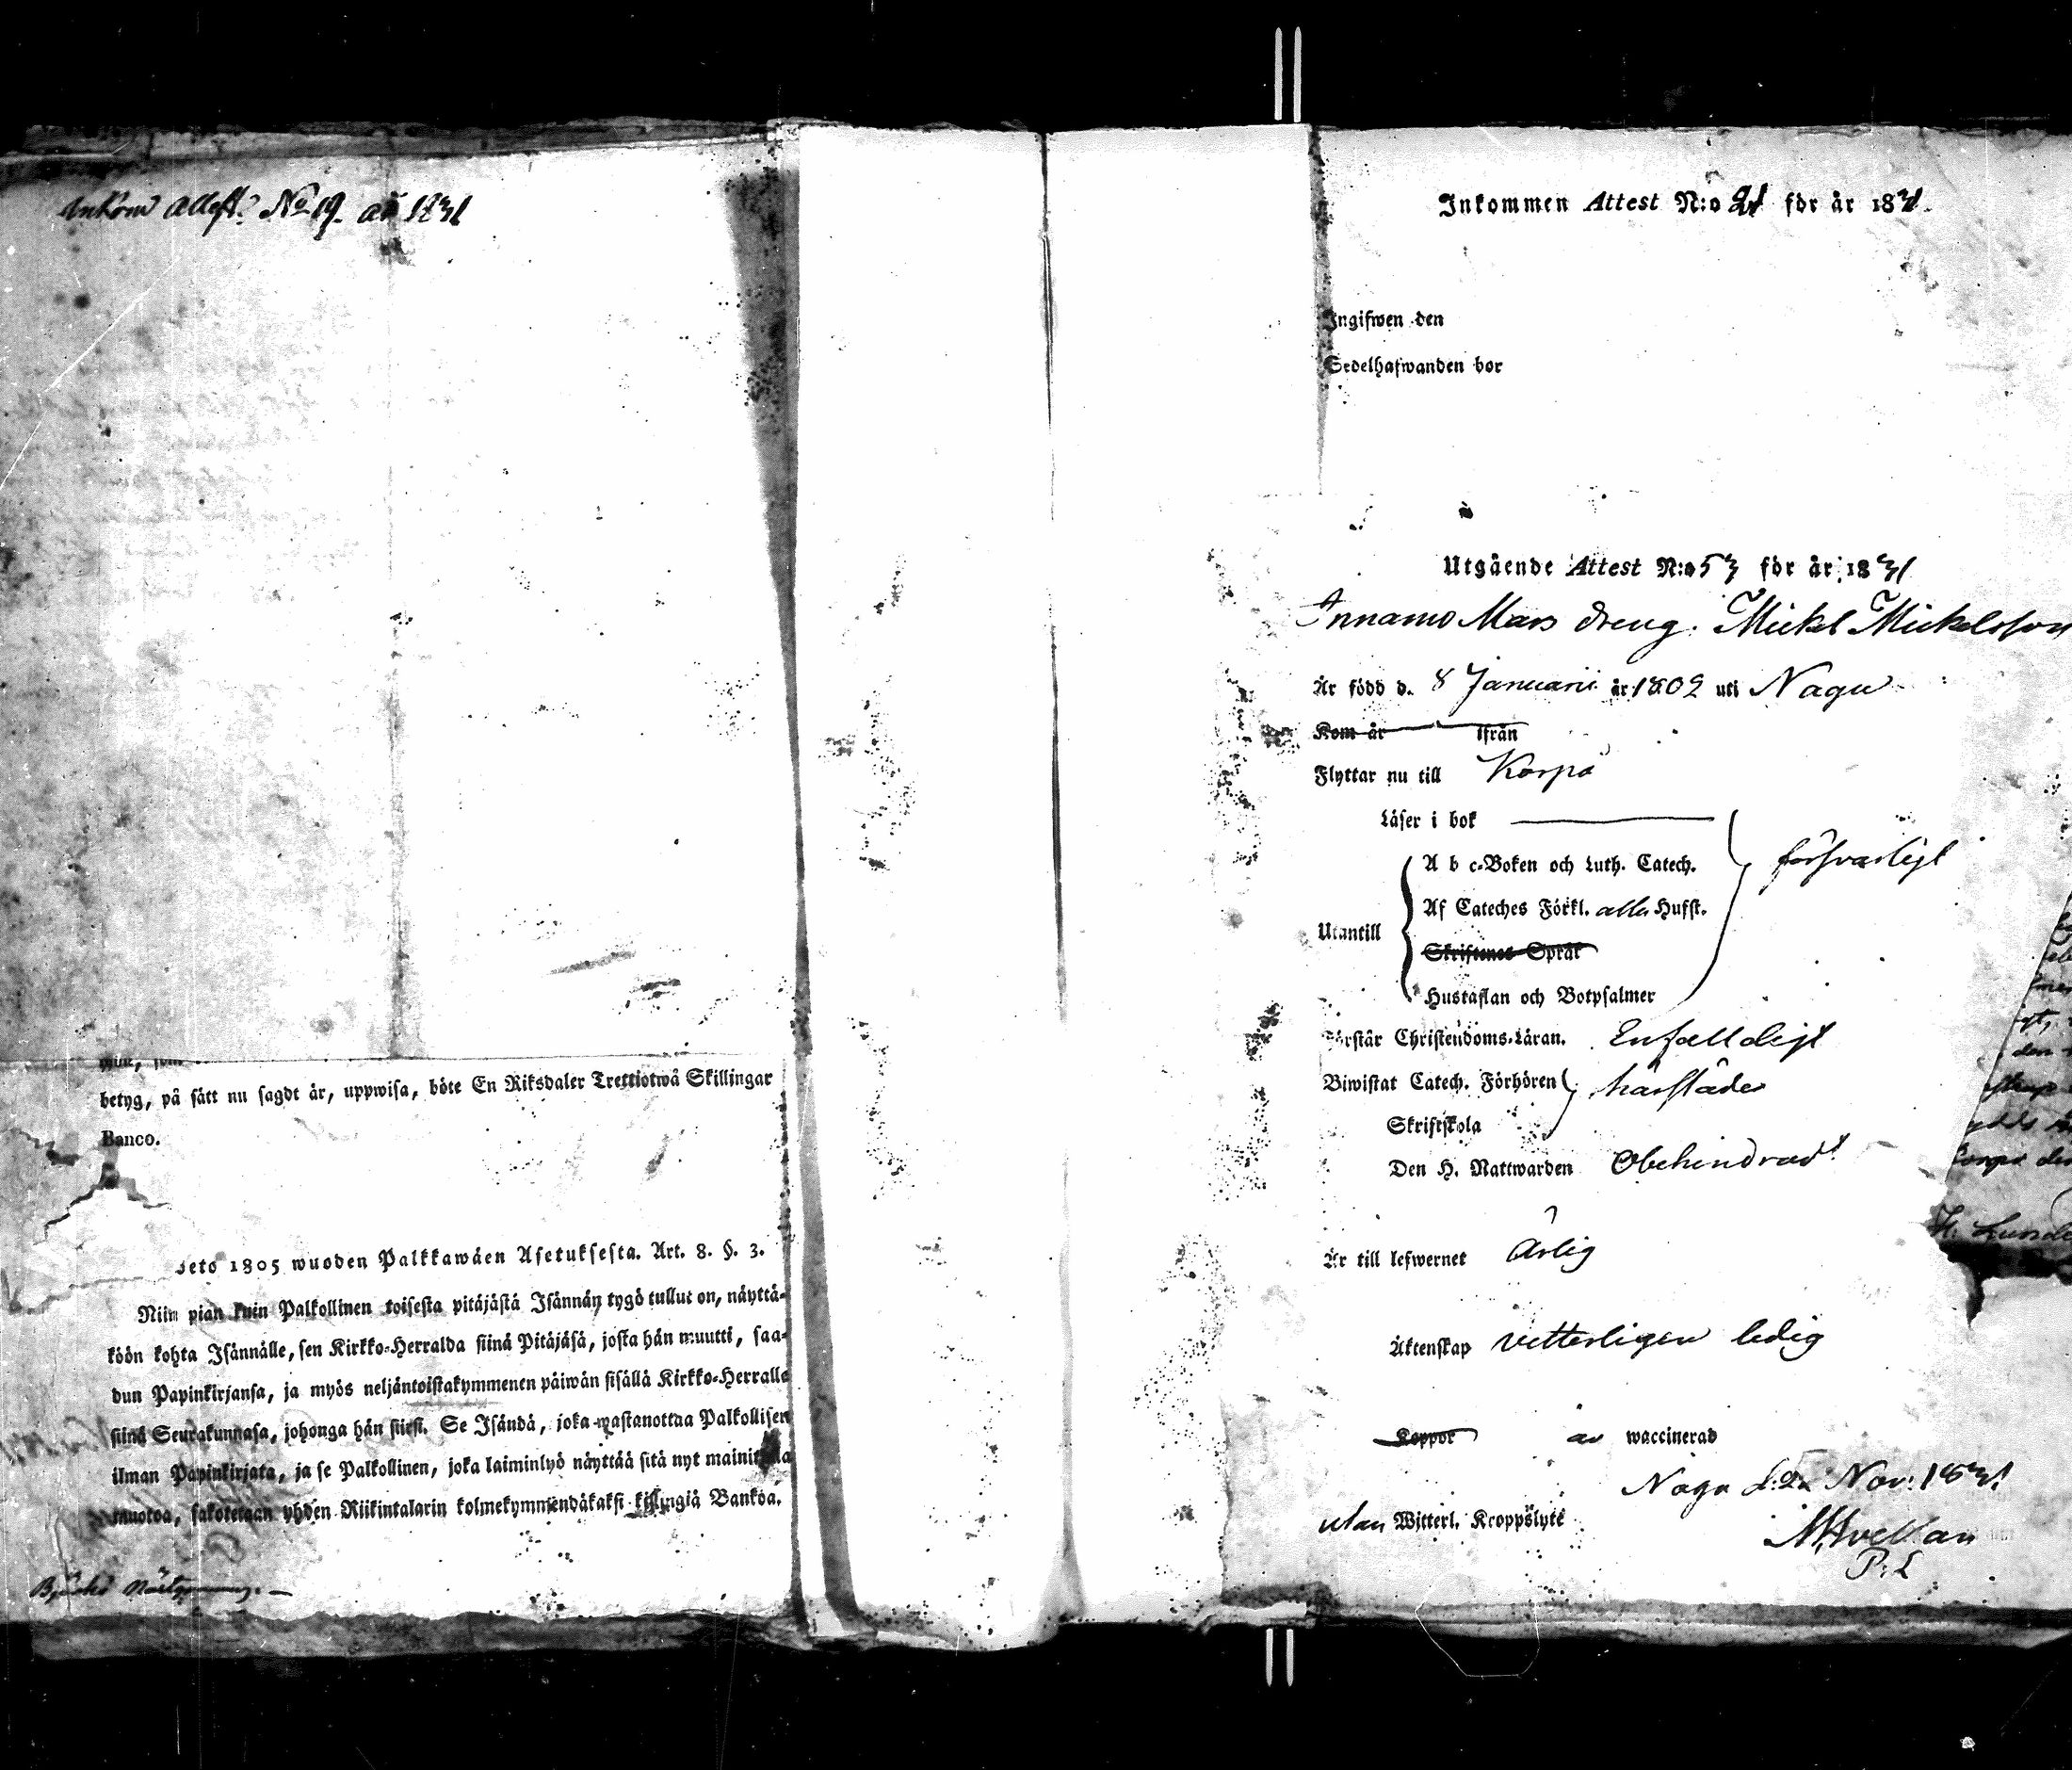 Inkom Attest. No 19. år 1831
betyg, på sätt nu sagdt är, uppwisa, böte En Riksdaler Trettiotwå Skillingar
Banco.
1805 wuoden Palkkawäen Asetuksesta. Art. 8. §. 3.
Niin pian kuin Palkollinen toisesta pitäjästä Isännän tygö tullut on, näyttä-
köön kohta Isännälle, sen Kirkko-Herralda siinä Pitäjäsä, josta hän muutti, saa-
dun Papinkirjansa, ja myös neljäntoistakymmenen päiwän sisällä Kirkko-Herralle
siinä Seurakunnasa, johonga hän siirsi. Se Isändä, joka wastanottaa Palkollisen
ilman Papinkirjata, ja se Palkollinen, joka laiminlyö näyttää sitä nyt mainitulla
muotoa, sakotetaan yhden Riikintalarin kolmekymmendäkaksi killingiä Bankoa.
Inkommen Attest N:o 21 för år 1831.
Ingifwen den
Sedelhafwanden bor
Utgående Attest N:o 53 för år 1831
Innamo Mars dreng. Mickel Mickelsson
Är född d. 8 Januarii år 1802 uti Nagu
Kom år ifrån
Flyttar nu till Korpo
Läser i bok
A b c-Boken och Luth. Catech. försvarligt
Af Cateches Förkl. alla Hufst.
Utantill
Skriftenes Språk
Hustaflan och Botpsalmer
Förstår Christendoms-Läran. Enfalldigt
Biwistat Catech. Förhören härstädes
Skriftskola
Den H. Nattwarden Obehindrad
Är till lefwernet Ärlig
Äktenskap vetterligen ledig
Koppor är waccinerad
Nagu d. 2 Nov: 1831
utan Witterl. Kroppslyte